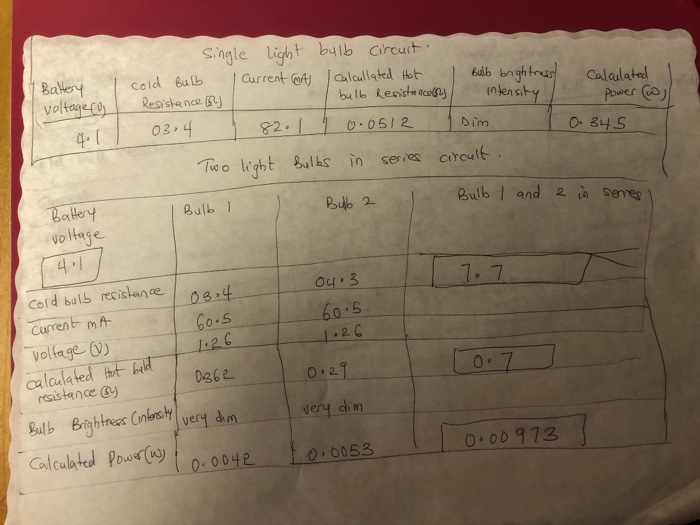 Single light bulb circuit.
Battery voltage(v) | cold Bulb Resistance(Ω) | Current (mA) | Calcullated Hot bulb Resistance(Ω) | Bulb brightness intensity | Calculated power (w)
4.1 | 03.4 | 82.1 | 0.0512 | Dim | 0.345
Two light Bulbs in series circuit.
Battery voltage | Bulb 1 | Bulb 2 | Bulb 1 and 2 in series
4.1
cold bulb resistance | 03.4 | 04.3 | 7.7
Current mA | 60.5 | 60.5
voltage (V) | 1.26 | 1.26
Calculated Hot bulb resistance (Ω) | 0.29 | 0.7
Bulb Brightness (intensity | very dim | very dim
Calculated Power(w) | 0.0042 | 0.0053 | 0.00973